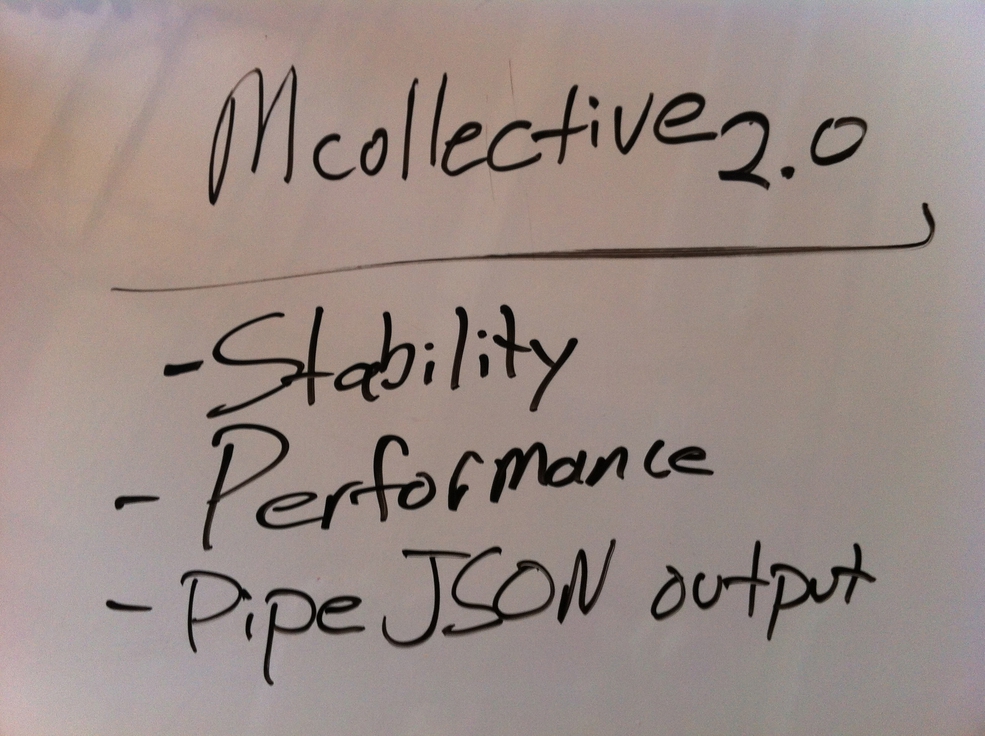 Mcollective 2.0
- Stability
- Performance
- Pipe JSON output